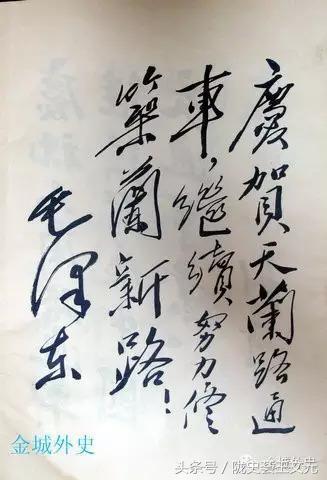 慶賀天蘭路通
車，繼續努力修
築蘭新路！
毛澤东
金城外史
金城外史
头条号/陇史荟王文元